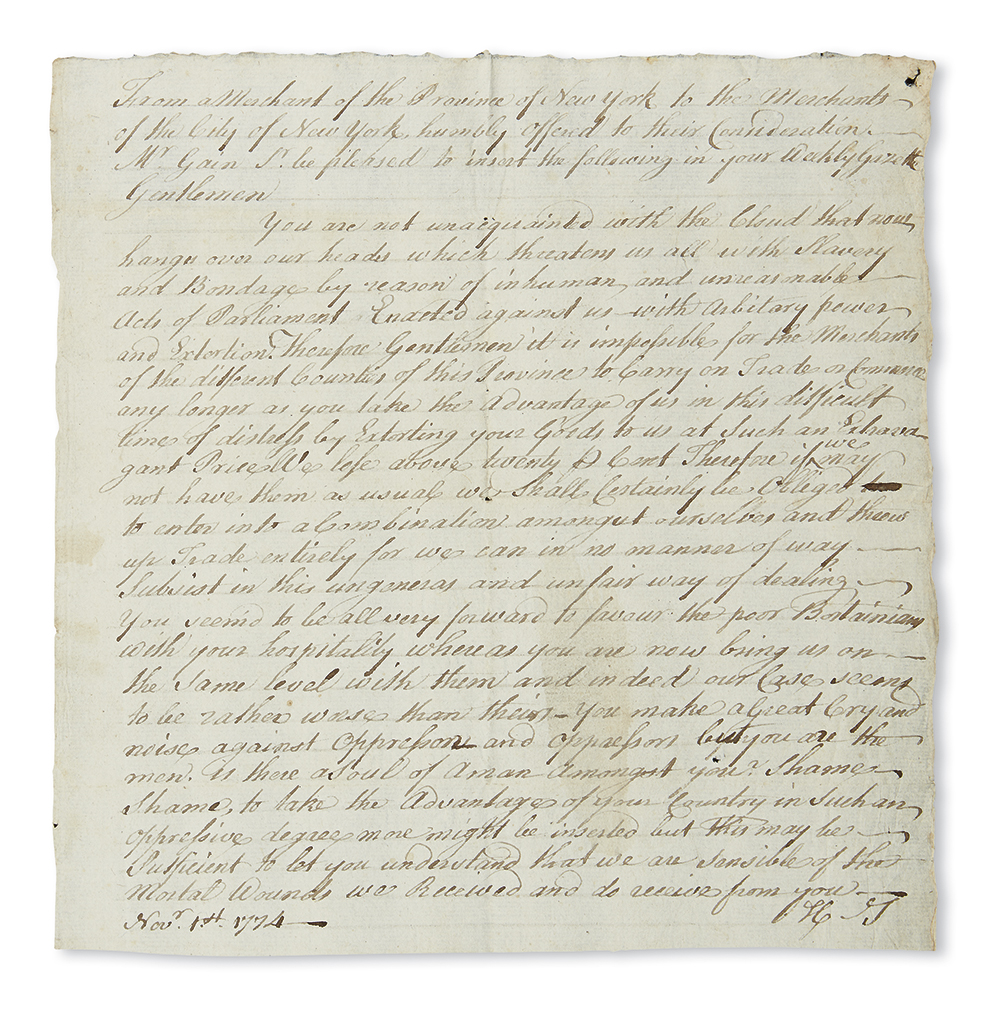 From a Merchant of the Province of New York to the Merchants
of the City of New York, humbly offered to their Consideration.
Mr Gain Sr. be pleased to insert the following in your Weekly Gazette
Gentlemen
You are not unacquainted with the Cloud that now
hangs over our heads which threatens us all with Slavery
and Bondage by reason of inhuman and unreasonable
Acts of Parliament Enacted against us with Arbitary power
and Extortion. Therefore Gentlemen it is impossible for the Merchants
of the different Counties of this Province to Carry on Trade or Commerce
any longer as you take the Advantage of us in this difficult
time of distress by Extorting your Goods to us at Such an Extrava
gant Price We lose above twenty Cent Therefore if we may
not have them as usual we Shall Certainly be Obleged
to enter into a Combination amongst ourselves and throw
up Trade entirely for we can in no manner of way
Subsist in this ungeneras and unfair way of dealing
You seem'd to be all very forward to favour the poor Bostainians
with your hospitality whereas you are now bring us on
the Same level with them and indeed our Case seems
to be rather worse than theirs – You make a Great Cry and
noise against oppression and oppressors but you are the
men. is there a Soul of a man Amongst you? Shame
Shame, to take the Advantage of your Country in Such an
Oppressive degree more might be inserted but this may be
Suficient to let you understand that we are sensible of the
Mortal Wounds we Received and do receive from you
Novr. 1st. 1774 H T